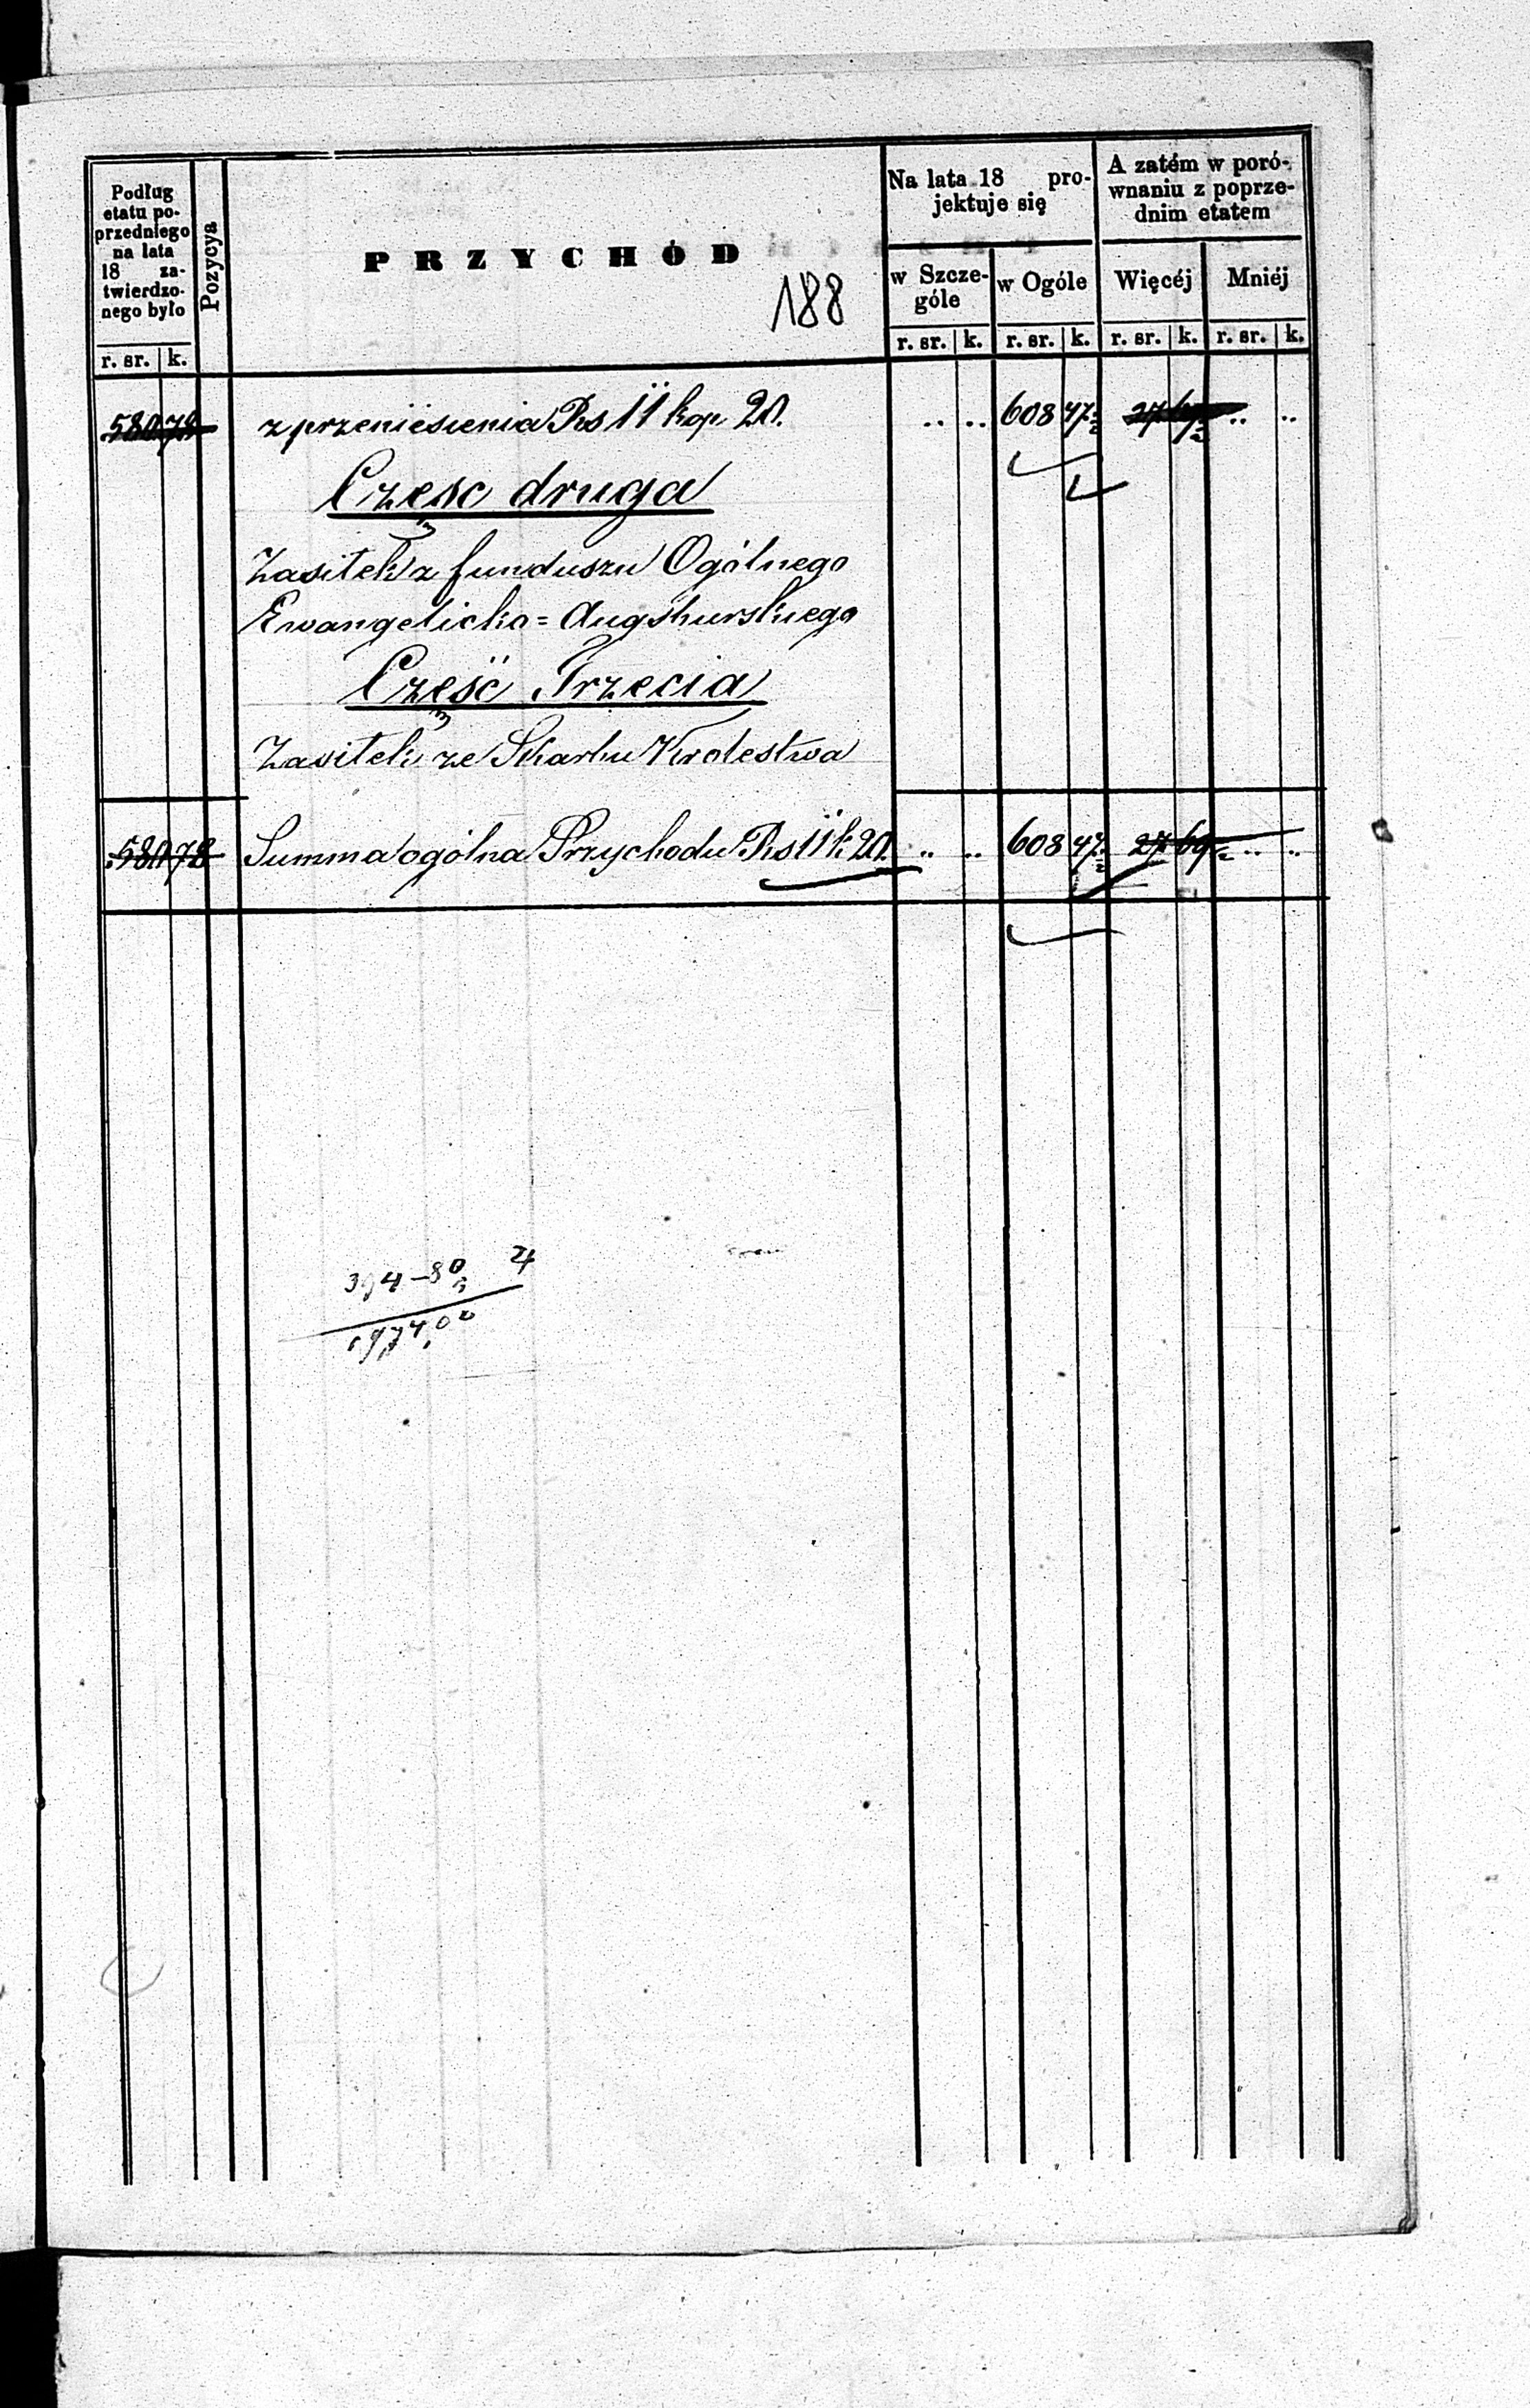 Podług
etatu po-
przedniego
na lata
18 za-
twierdzo-
nego było
r. sr. k.
Pozycya
PRZYCHÓD
188
Na lata 18 pro-
jektuje się
w Szcze-
góle
r. sr. k.
w Ogóle
r. sr. k.
A zatém w poró-
wnaniu z poprze-
dnim etatem
Więcéj
r. sr. k.
Mniéj
r. sr. k.
580 78 z przeniesienia Rs 11 kop 20. .. .. 608 47½ 27 69½ .. ..
Część druga
Zasiłek z funduszu Ogólnego
Ewangelicko = Augsburskiego
Część Trzecia
Zasiłek ze Skarbu Krolestwa
580 78 Summa ogólna Przychodu Rs 11 k 20. .. .. 608 47½ 27 69½ .. ..
394-80 4